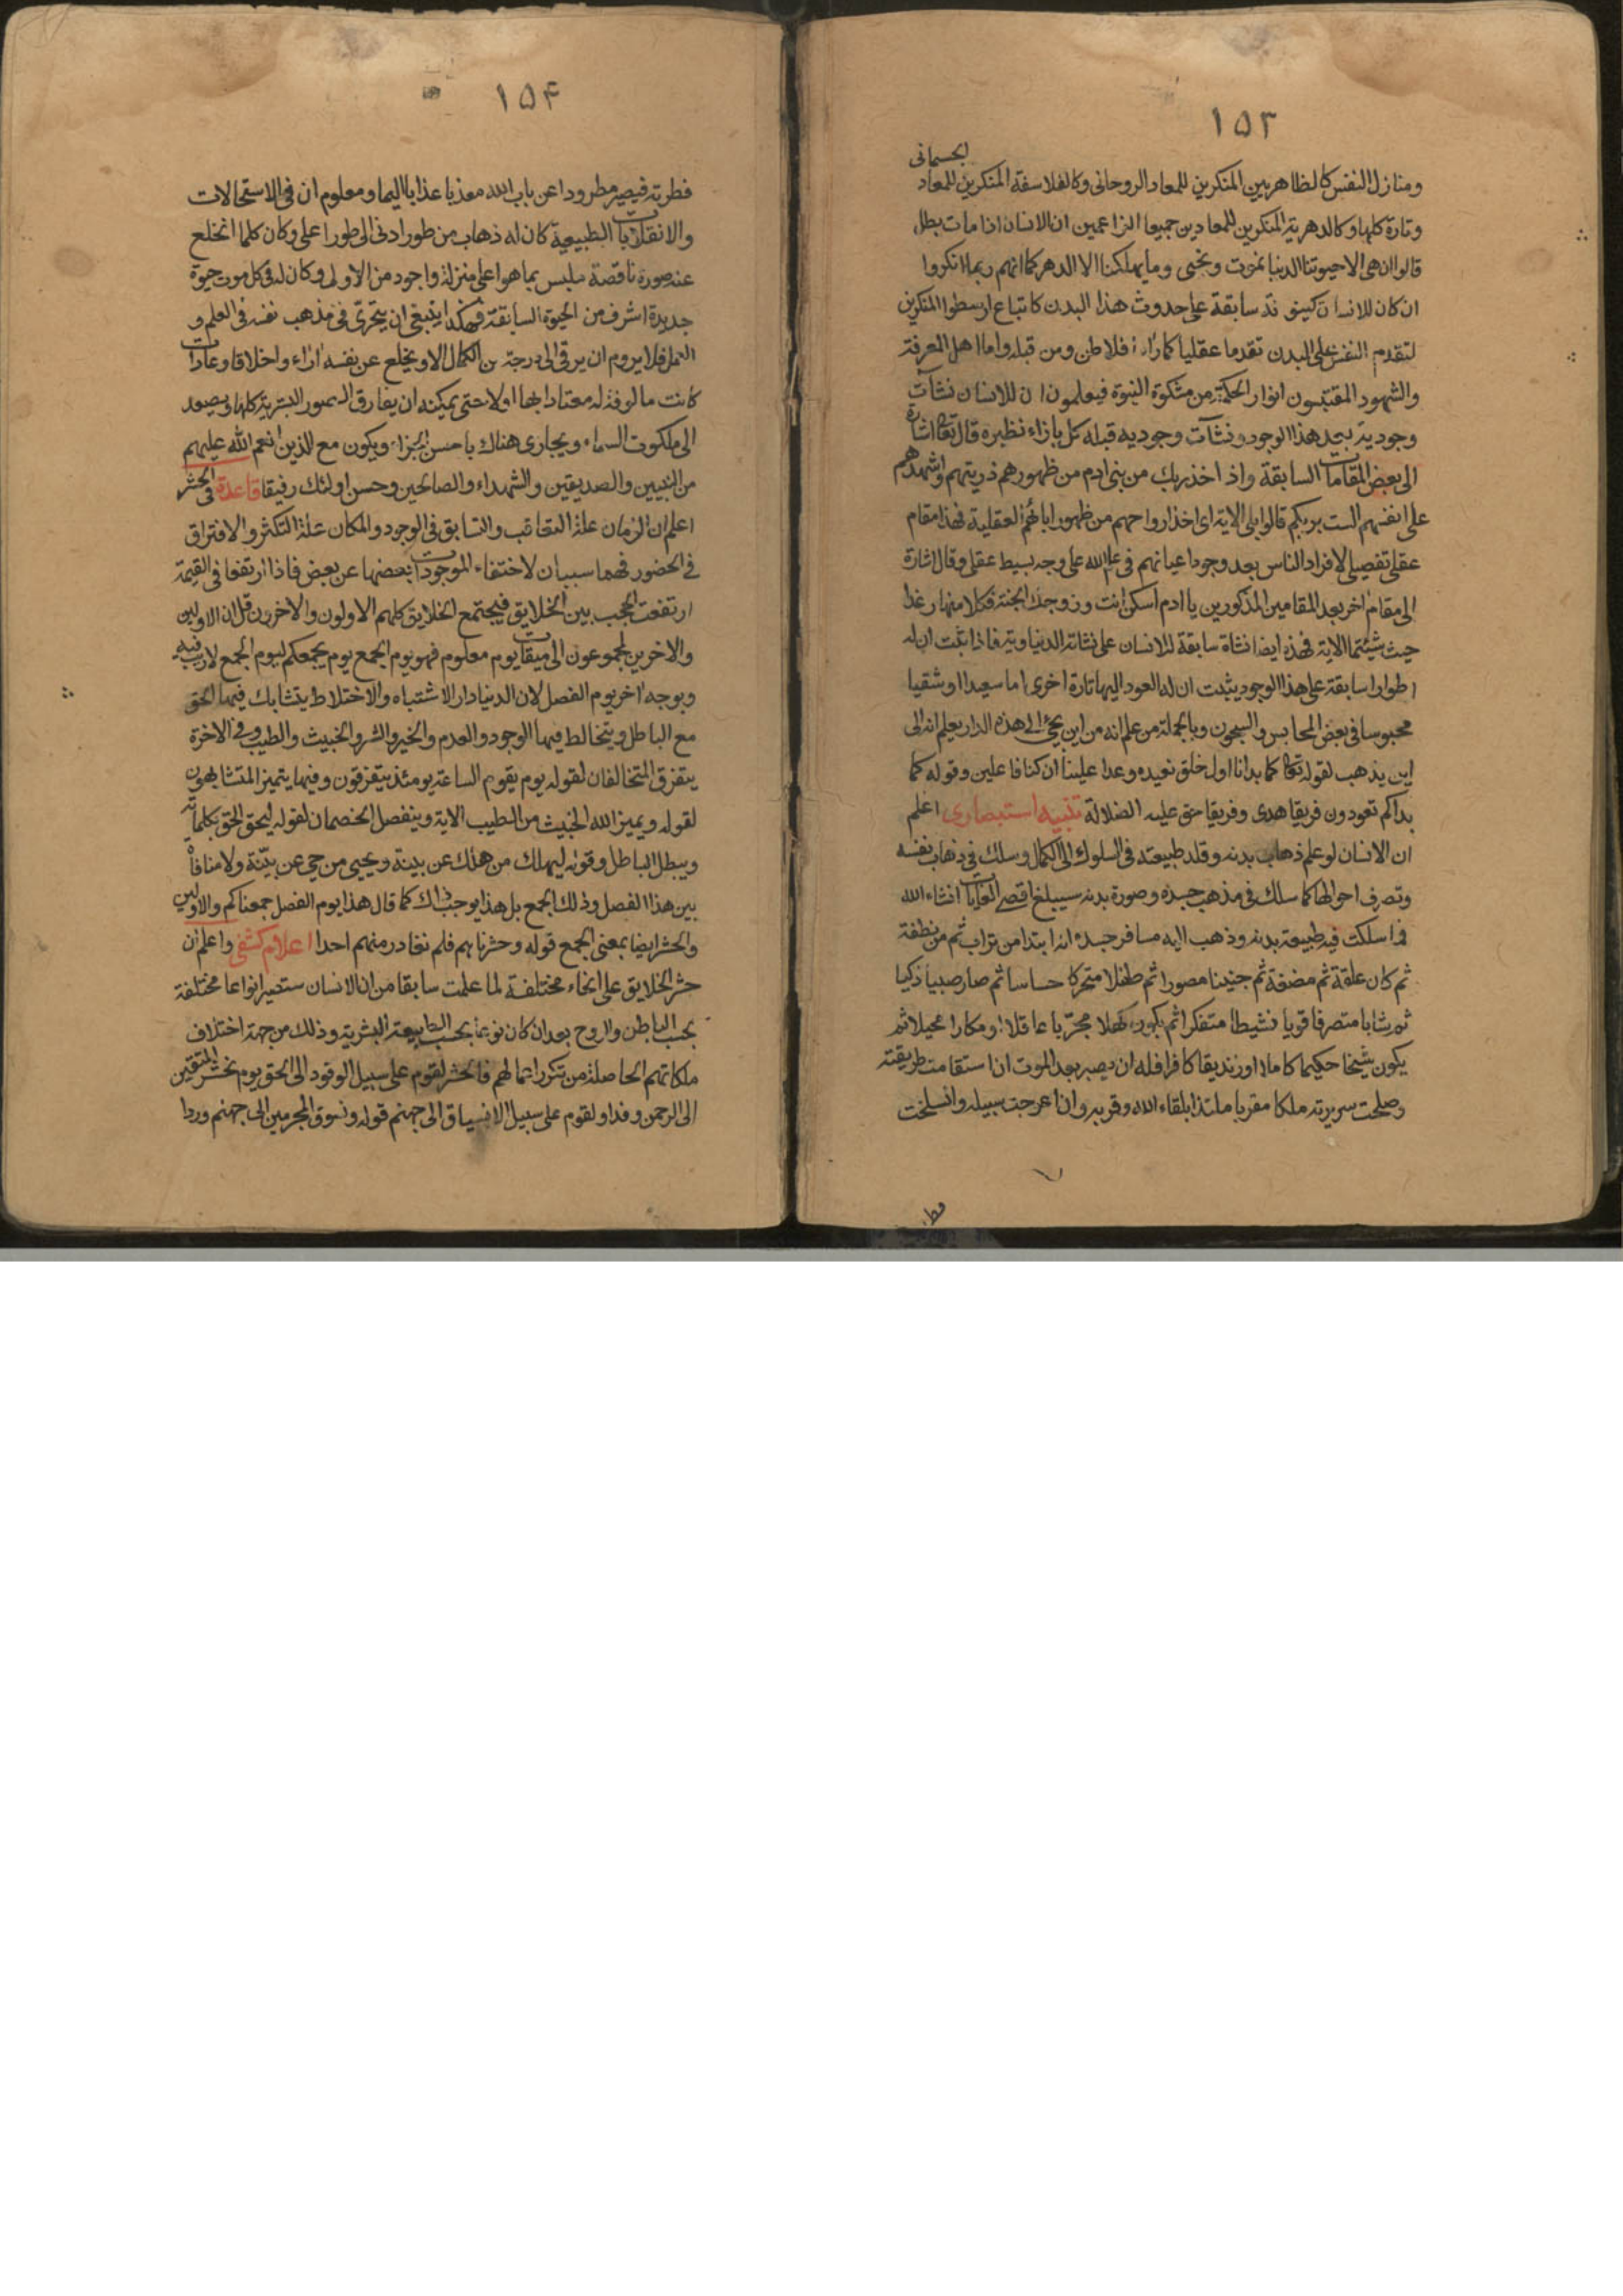 ١٥٣
الجسمانى
ومنازل النفس كالظاهريين المنكرين للمعاد الروحانى وكالفلاسفة المنكرين للمعاد
وتارة كلها وكالدهرية المنكرين للمعادين جميعا الزاعمين ان الانسان اذا مات بطل
قالوا ان هى الا حيوتنا الدنيا نموت ونحيى وما يهلكنا الا الدهر كما انهم ربما انكروا
ان كان للانسان كينونة سابقة على حدوث هذا البدن كاتباع ارسطو المنكرين
لتقدم النفس على البدن تقدما عقليا كما راه افلاطن ومن قبله واما اهل المعرفة
والشهود المقتبسون انوار الحكمة من مشكوة النبوة فيعلمون ان للانسان نشآت
وجودية بعد هذا الوجود ونشآت وجوديه قبله كل بازاء نظيره قال تعالى اشارة
الى بعض المقامات السابقة واذ اخذ ربك من بنى ادم من ظهورهم ذريتهم واشهدهم
على انفسهم الست بربكم قالوا بلى الاية اى اخذ ارواحهم من ظهور ابائهم العقلية فهذا مقام
عقلى تفصيلى لافراد الناس بعد وجود اعيانهم فى علم الله على وجه بسيط عقلى وقال اشارة
الى مقام اخر بعد المقامين المذكورين يا ادم اسكن انت وزوجك الجنة فكلا منها رغدا
حيث شيئتما الاية فهذه ايضا نشاة سابقة للانسان على نشاته الدنياوية فاذا ثبت ان له
اطوارا سابقة على هذا الوجود يثبت ان له العود اليها تارة اخرى اما سعيدا او شقيا
محبوسا فى بعض المحابس والسجون وبالجملة من علم انه من اين يجئ الى هذه الدار يعلم انه الى
اين يذهب لقوله تعالى كما بدانا اول خلق نعيده وعدا علينا ان كنا فاعلين وقوله كما
بداكم تعودون فريقا هدى وفريقا حق عليه الضلالة تنبيه استبصارى اعلم
ان الانسان لو علم ذهاب بدنه وقلد طبيعته فى السلوك الى الكمال وسلك فى ذهاب نفسه
وتصرف احوالها كما سلك فى مذهب جسده وصورة بدنه سيبلغ اقصى الغايات انشاء الله
فما سلكت فيه طبيعة بدنه وذهب اليه مسافر جسده انه ابتدا من تراب ثم من نطفة
ثم كان علقة ثم مضغة ثم جنينا مصورا ثم طفلا متحركا حساسا ثم صار صبيا ذكيا
ثم شابا متصرفا قويا نشيطا متفكرا ثم يكون كهلا مجربا عاقلا او مكارا محيلا ثم
يكون شيخا حكيما كاملا او زنديقا كافرا فله ان يصير بعد الموت ان استقامت طريقته
وصلحت سريرته ملكا مقربا ملتذا بلقاء الله وقربه وان اعوجت سبيله وانسلخت
١٥۴
فطرته فيصير مطرودا عن باب الله معذبا عذابا اليما ومعلوم ان فى الاستحالات
والانقلابات الطبيعية كان له ذهاب من طور ادنى الى طور اعلى وكان كلما انخلع
عنه صورة ناقصة تلبس بما هو اعلى منزلة واجود من الاولى وكان له فى كل موت حيوة
جديدة اشرف من الحيوة السابقة فهكذا ينبغى ان يتحرى فى مذهب نفسه فى العلم و
العمل فلا يروم ان يرقى الى درجة من الكمال الا ويخلع عن نفسه اراء واخلاقا وعادات
كانت مالوفة له معتادا بها اولا حتى يمكنه ان يفارق الصور البشرية كلها ويصعد
الى ملكوت السماء ويجازى هناك باحسن الجزاء ويكون مع الذين انعم الله عليهم
من النبيين والصديقين والشهداء والصالحين وحسن اولئك رفيقا قاعدة فى الحشر
اعلم ان الزمان علة التعاقب والتسابق فى الوجود والمكان علة التكثر والافتراق
فى الحضور فهما سببان لاختفاء الموجودات بعضها عن بعض فاذا ارتفعا فى القيمة
ارتفعت الحجب بين الخلايق فيجتمع الخلايق كلهم الاولون والاخرون قل ان الاولين
والاخرين لمجموعون الى ميقات يوم معلوم فهو يوم الجمع يوم يجمعكم ليوم الجمع لا ريب فيه
وبوجه اخر يوم الفصل لان الدنيا دار الاشتباه والاختلاط يتشابك فيها الحق
مع الباطل ويتخالط فيها الوجود والعدم والخير والشر والخبيث والطيب وفى الاخرة
يتفرق المتخالفان لقوله يوم يقوم الساعة يومئذ يتفرقون وفيها يتميز المتشابهون
لقوله ويميز الله الخبيث من الطيب الاية وينفصل الخصمان لقوله ليحق الحق بكلماته
ويبطل الباطل وقوله ليهلك من هلك عن بينة ويحيى من حى عن بينة ولا منافاة
بين هذا الفصل وذلك الجمع بل هذا يوجب ذاك كما قال هذا يوم الفصل جمعناكم والاولين
والحشر ايضا بمعنى الجمع قوله وحشرناهم فلم نغادر منهم احدا اعلام كشفى واعلم ان
حشر الخلايق على انحاء مختلفة لما علمت سابقا من ان الانسان ستصير انواعا مختلفة
بحسب الباطن والروح بعد ان كان نوعا بحسب الطبيعة البشرية وذلك من جهة اختلاف
ملكاتهم الحاصلة من تكرر اعمالهم فالحشر لقوم على سبيل الوفود الى الحق يوم نحشر المتقين
الى الرحمن وفدا ولقوم على سبيل الانسياق الى جهنم قوله ونسوق المجرمين الى جهنم وردا